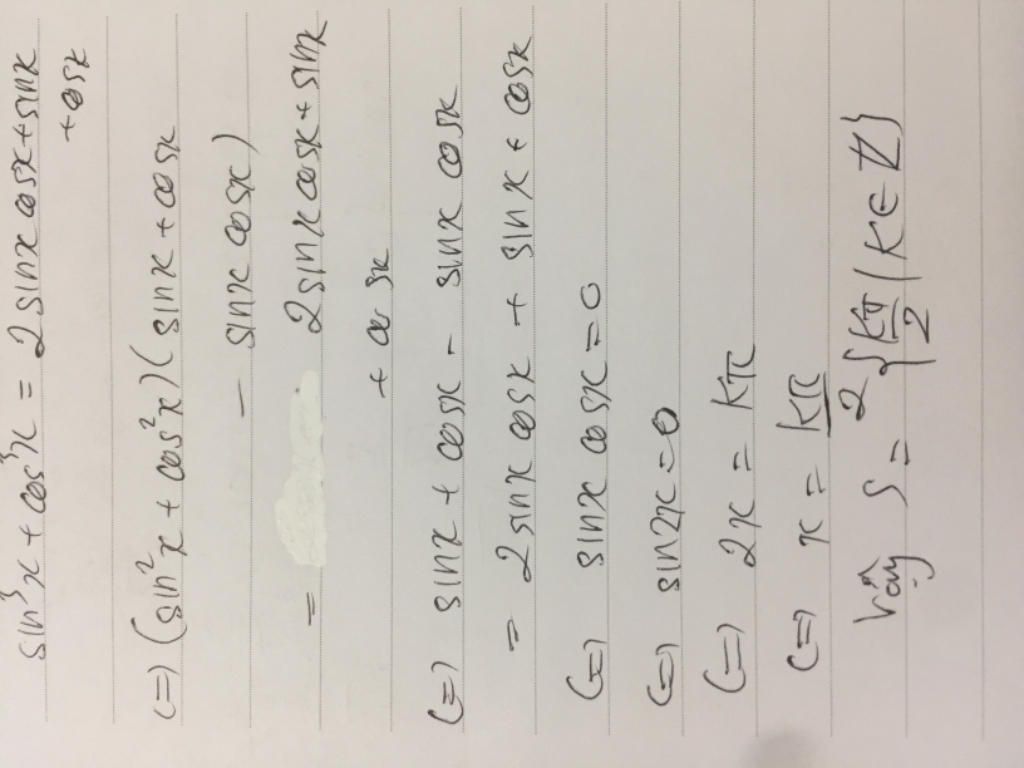 sin³x + cos³x = 2 sinx cosx + sinx
+ cosx
(=) (sin²x + cos²x) ( sinx + cosx
– sinx cosx )
= 2 sinx cosx + sinx
+ cosx
(=) sinx + cosx – sinx cosx
= 2 sinx cosx + sinx + cosx
(=) sinx cosx = 0
(=) sin2x = 0
(=) 2x = kπ
(=) x = kπ/2
Vậy S = {kπ/2 | k ∈ Z}